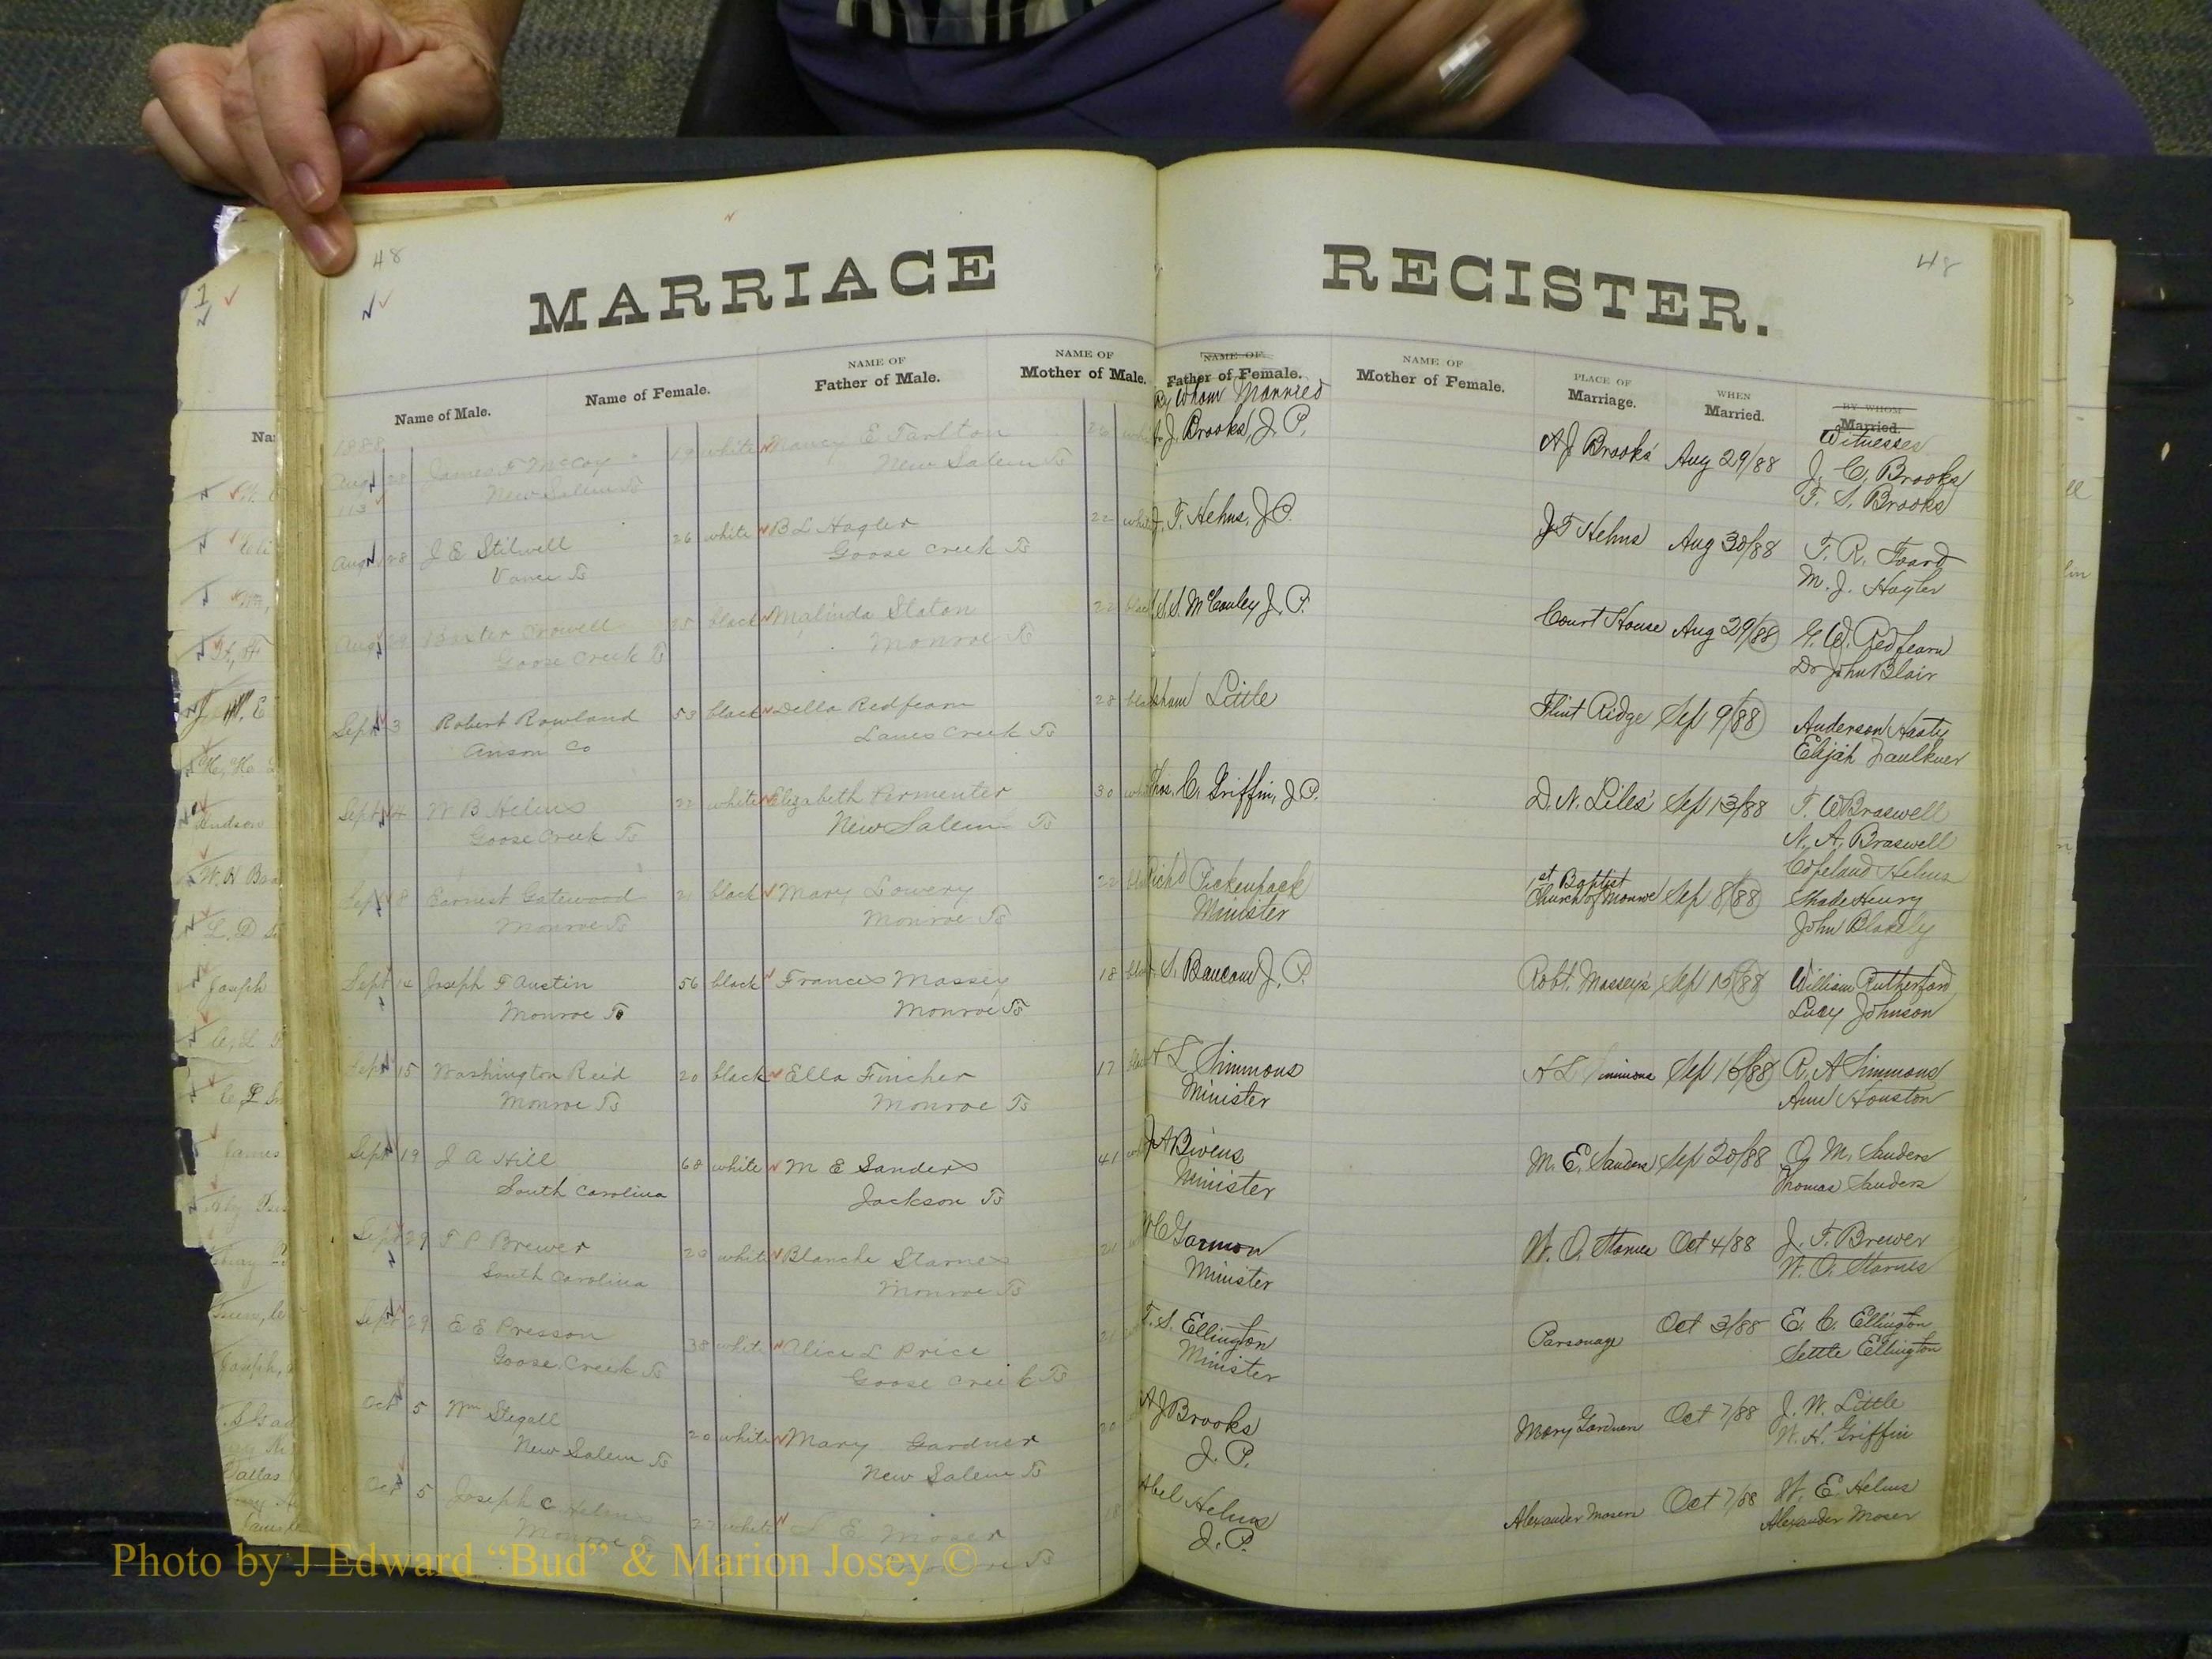 48
48
MARRIAGE REGISTER.
Name of Male.
Name of Female.
NAME OF
Father of Male.
NAME OF
Mother of Male.
NAME OF
Father of Female.
By Whom Married
NAME OF
Mother of Female.
PLACE OF
Marriage.
WHEN
Married.
BY WHOM
Married.
Witnesses
1888
Aug 28 James F McCoy 19 white Nancy E Tarlton 26 A. J. Brooks, J. P. A J Brooks' Aug 29/88 J. C. Brooks
New Salem Ts New Salem Ts T. S. Brooks
Aug 28 J E Stilwell 26 white B L Hagler 22 white J. T. Helms, J. P. J T Helms Aug 30/88 T. R. Foard
Vance Ts Goose Creek Ts M. J. Hagler
Aug 29 Baxter Crowell black Malinda Staton 22 black S. S. McCauley J. P. Court House Aug 29/88 G. W. Redfearn
Goose Creek Ts Monroe Ts Dr John Blair
Sept 3 Robert Rowland 53 black Della Redfearn 28 Little Flint Ridge Sep 9/88 Anderson Hasty
Anson Co Lanes Creek Ts Elijah Faulkner
Sept 4 W B Helms 22 white Elizabeth Parmenter 30 Thos. C. Griffin, J. P. D. N. Liles' Sep 13/88 T. W Braswell
Goose Creek Ts New Salem Ts N. A. Braswell
Copeland Helms
Sept 8 Earnest Gatewood 21 black Mary Lowery 22 Rich'd Pickenpack 1st Baptist Church of Monroe Sep 8/88 Shade Henry
Monroe Ts Monroe Ts Minister John Blakely
Sept 14 Joseph F Austin 56 black Frances Massey 18 S. Baucom J. P. Robt. Massey's Sep 15/88 William Rutherford
Monroe Ts Monroe Ts Lucy Johnson
Sept 15 Washington Reid 20 black Ella Fincher 17 A L Simmons A L Simmons Sep 16/88 R. A Simmons
Monroe Ts Monroe Ts Minister Ann Houston
Sept 19 J A Hill 68 white M E Sanders 41 J A Bivens M. E. Sanders' Sep 20/88 O M. Sanders
South Carolina Jackson Ts Minister Thomas Sanders
Sept 29 T P Brewer 23 white Blanche Starnes 21 W C Garmon W. O. Starnes Oct 4/88 J. T. Brewer
South Carolina Monroe Ts Minister W. O. Starnes
Sept 29 E E Presson 38 white Alice L Price T. S. Ellington Parsonage Oct 3/88 E. C. Ellington
Goose Creek Ts Goose Creek Ts Minister Settle Ellington
Oct 5 Wm Stegall 20 white Mary Gardner 20 A J Brooks Mary Gardners Oct 7/88 J. W. Little
New Salem Ts New Salem Ts J. P. W. H. Griffin
Oct 5 Joseph C Helms 22 white E Moser Abel Helms Alexander Mosers Oct 7/88 W. E. Helms
Monroe Ts Monroe Ts J. P. Alexander Moser
Photo by J Edward “Bud” & Marion Josey ©